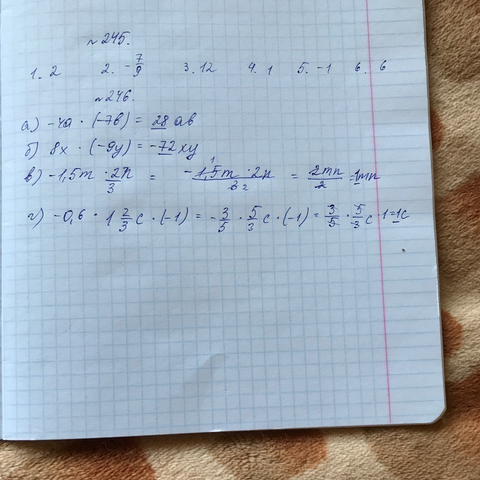 №245.
1. 2 2. -7/9 3. 12 4. 1 5. -1 6. 6
№246.
а) -4а · (-7в) = 28 ав
б) 8х · (-9у) = -72 ху
в) -1,5m · 2n/3 = -1,5m · 2n/3 2 = 2mn/2 = 1mn
г) -0,6 · 1 2/3 с · (-1) = -3/5 · 5/3 с · (-1) = 3/5 · 5/3 с · 1 = 1с